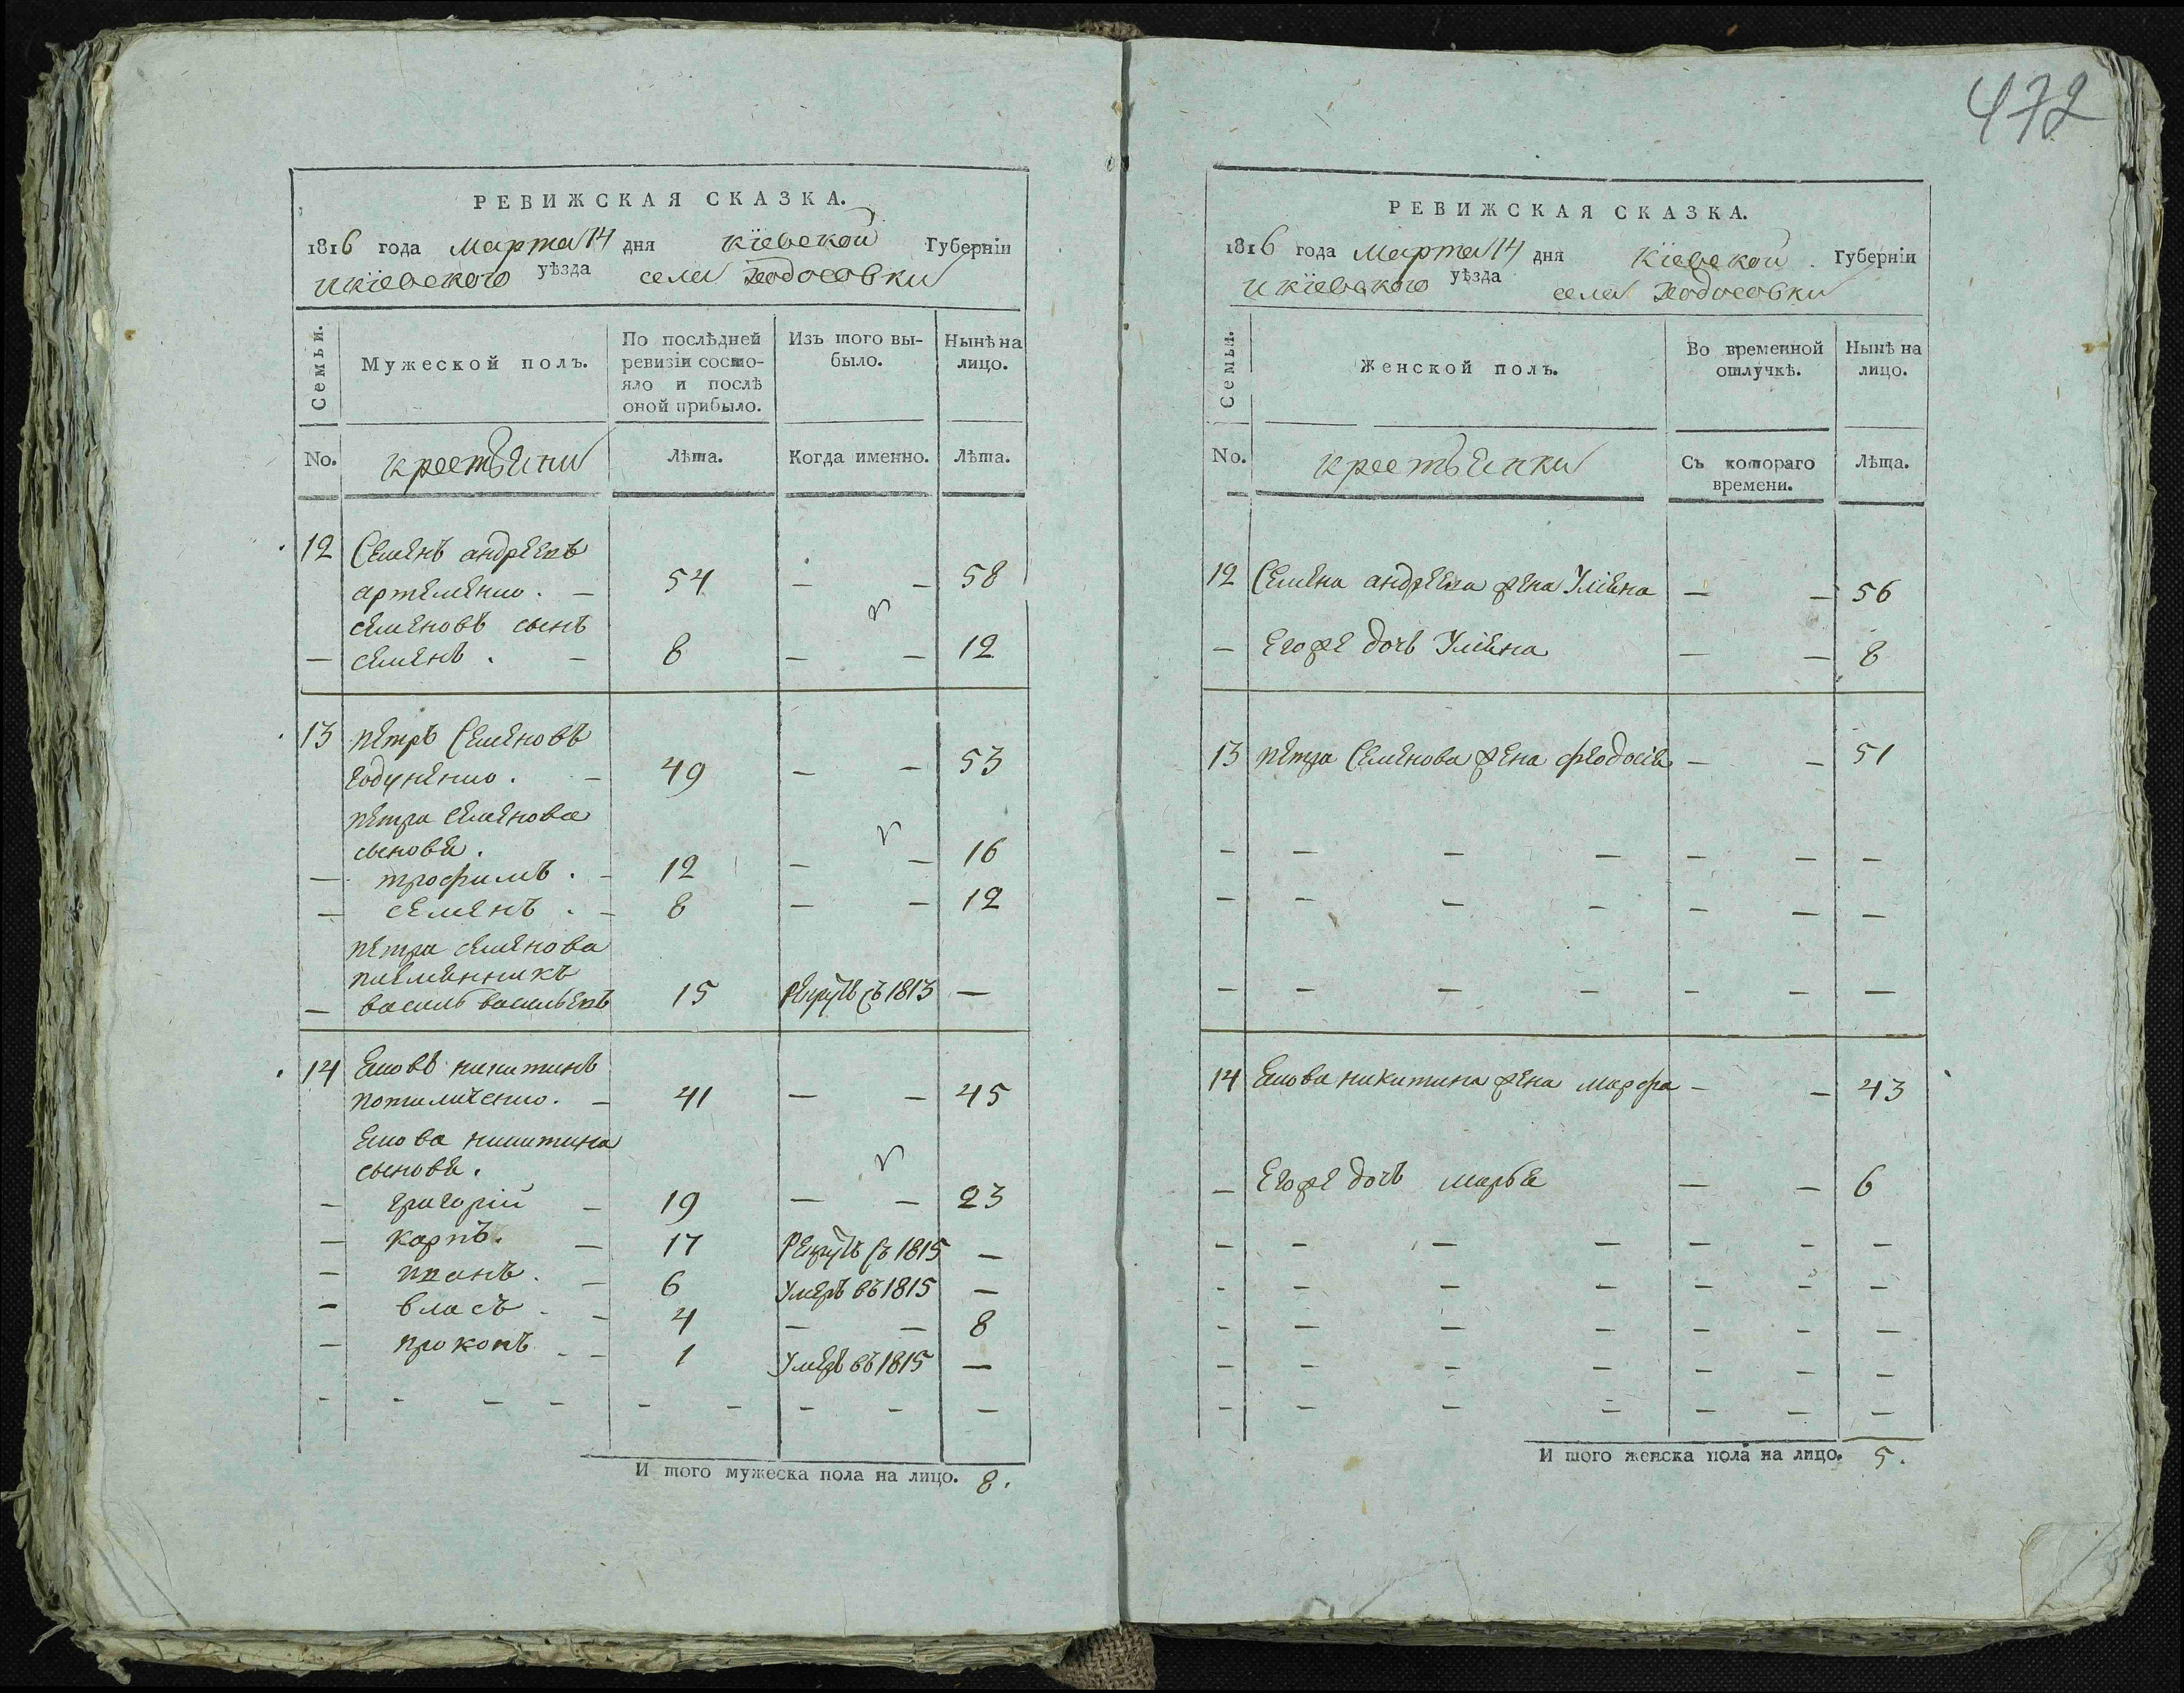 472
РЕВИЖСКАЯ СКАЗКА.
1816 года марта 14 дня кіевской Губерніи
и кіевского уѣзда села Ходосовки
Семьи.
Мужеской полъ.
По послѣдней ревизіи состояло и послѣ оной прибыло.
Изъ того выбыло.
Нынѣ на лицо.
No. крестьяни Лѣта. Когда именно. Лѣта.
12 Семенъ андреевъ
артеменко. — 54 — — 58
семеновъ сынъ
— семенъ. — 8 — — 12
13 петръ Семеновъ
— 49 — — 53
петра семенова
сыновя.
— трофимъ. — 12 — — 16
— семенъ. — 8 — — 12
петра семенова
племянникъ
— василь васильевъ 15 рекрутъ съ 1813 —
14 никитинъ
— 41 — — 45
никитина
сыновя.
— григорій — 19 — — 23
— карпъ. — 17 Рекрутъ съ 1815 —
— иванъ. — 6 Умеръ въ 1815 —
— власъ. — 4 — — 8
— прокопъ. — 1 Умеръ въ 1815 —
- - — - - - - - —
И того мужеска пола на лицо. 8.
РЕВИЖСКАЯ СКАЗКА.
1816 года марта 14 дня Кіевской Губерніи
и кіевского уѣзда села Ходосовки
Семьи.
Женской полъ.
Во временной отлучкѣ.
Нынѣ на лицо.
No. крестьянки Съ котораго времени. Лѣта.
12 Семена андреева жена Уліяна — — 56
— Егоже дочь Уліяна — — 8
13 петра Семенова жена феодосія — — 51
— — — — — — —
— — — — — — —
— — — — — — —
14 никитина жена марфа — — 43
— Егоже дочь марья — — 6
— — — — — — —
— — — — — — —
— — — — — — —
— — — — — — —
— — — — — — —
И того женска пола на лицо. 5.